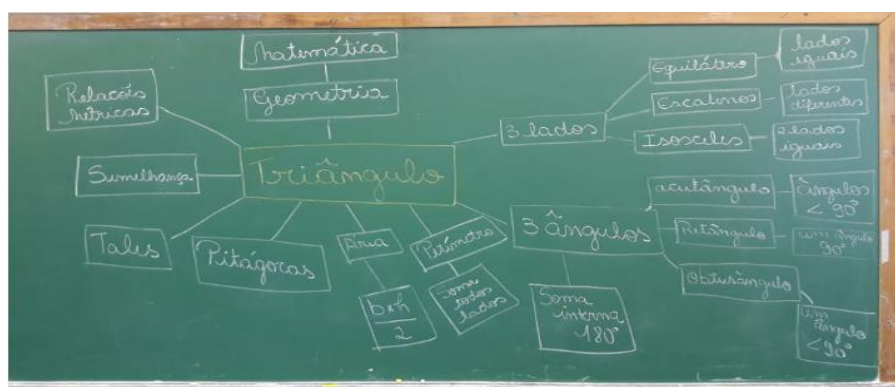 Matemática
Geometria
Triângulo
Relações
Métricas
Semelhança
Tales
Pitágoras
Área
bxh
2
Perímetro
Soma
todos
lados
3 lados
Equilátero
lados
iguais
Escalenos
lados
diferentes
Isosceles
2 lados
iguais
3 ângulos
acutângulo
Ângulos
< 90°
Retângulo
um ângulo
90°
Obtusângulo
um
ângulo
< 90°
Soma
interna
180°